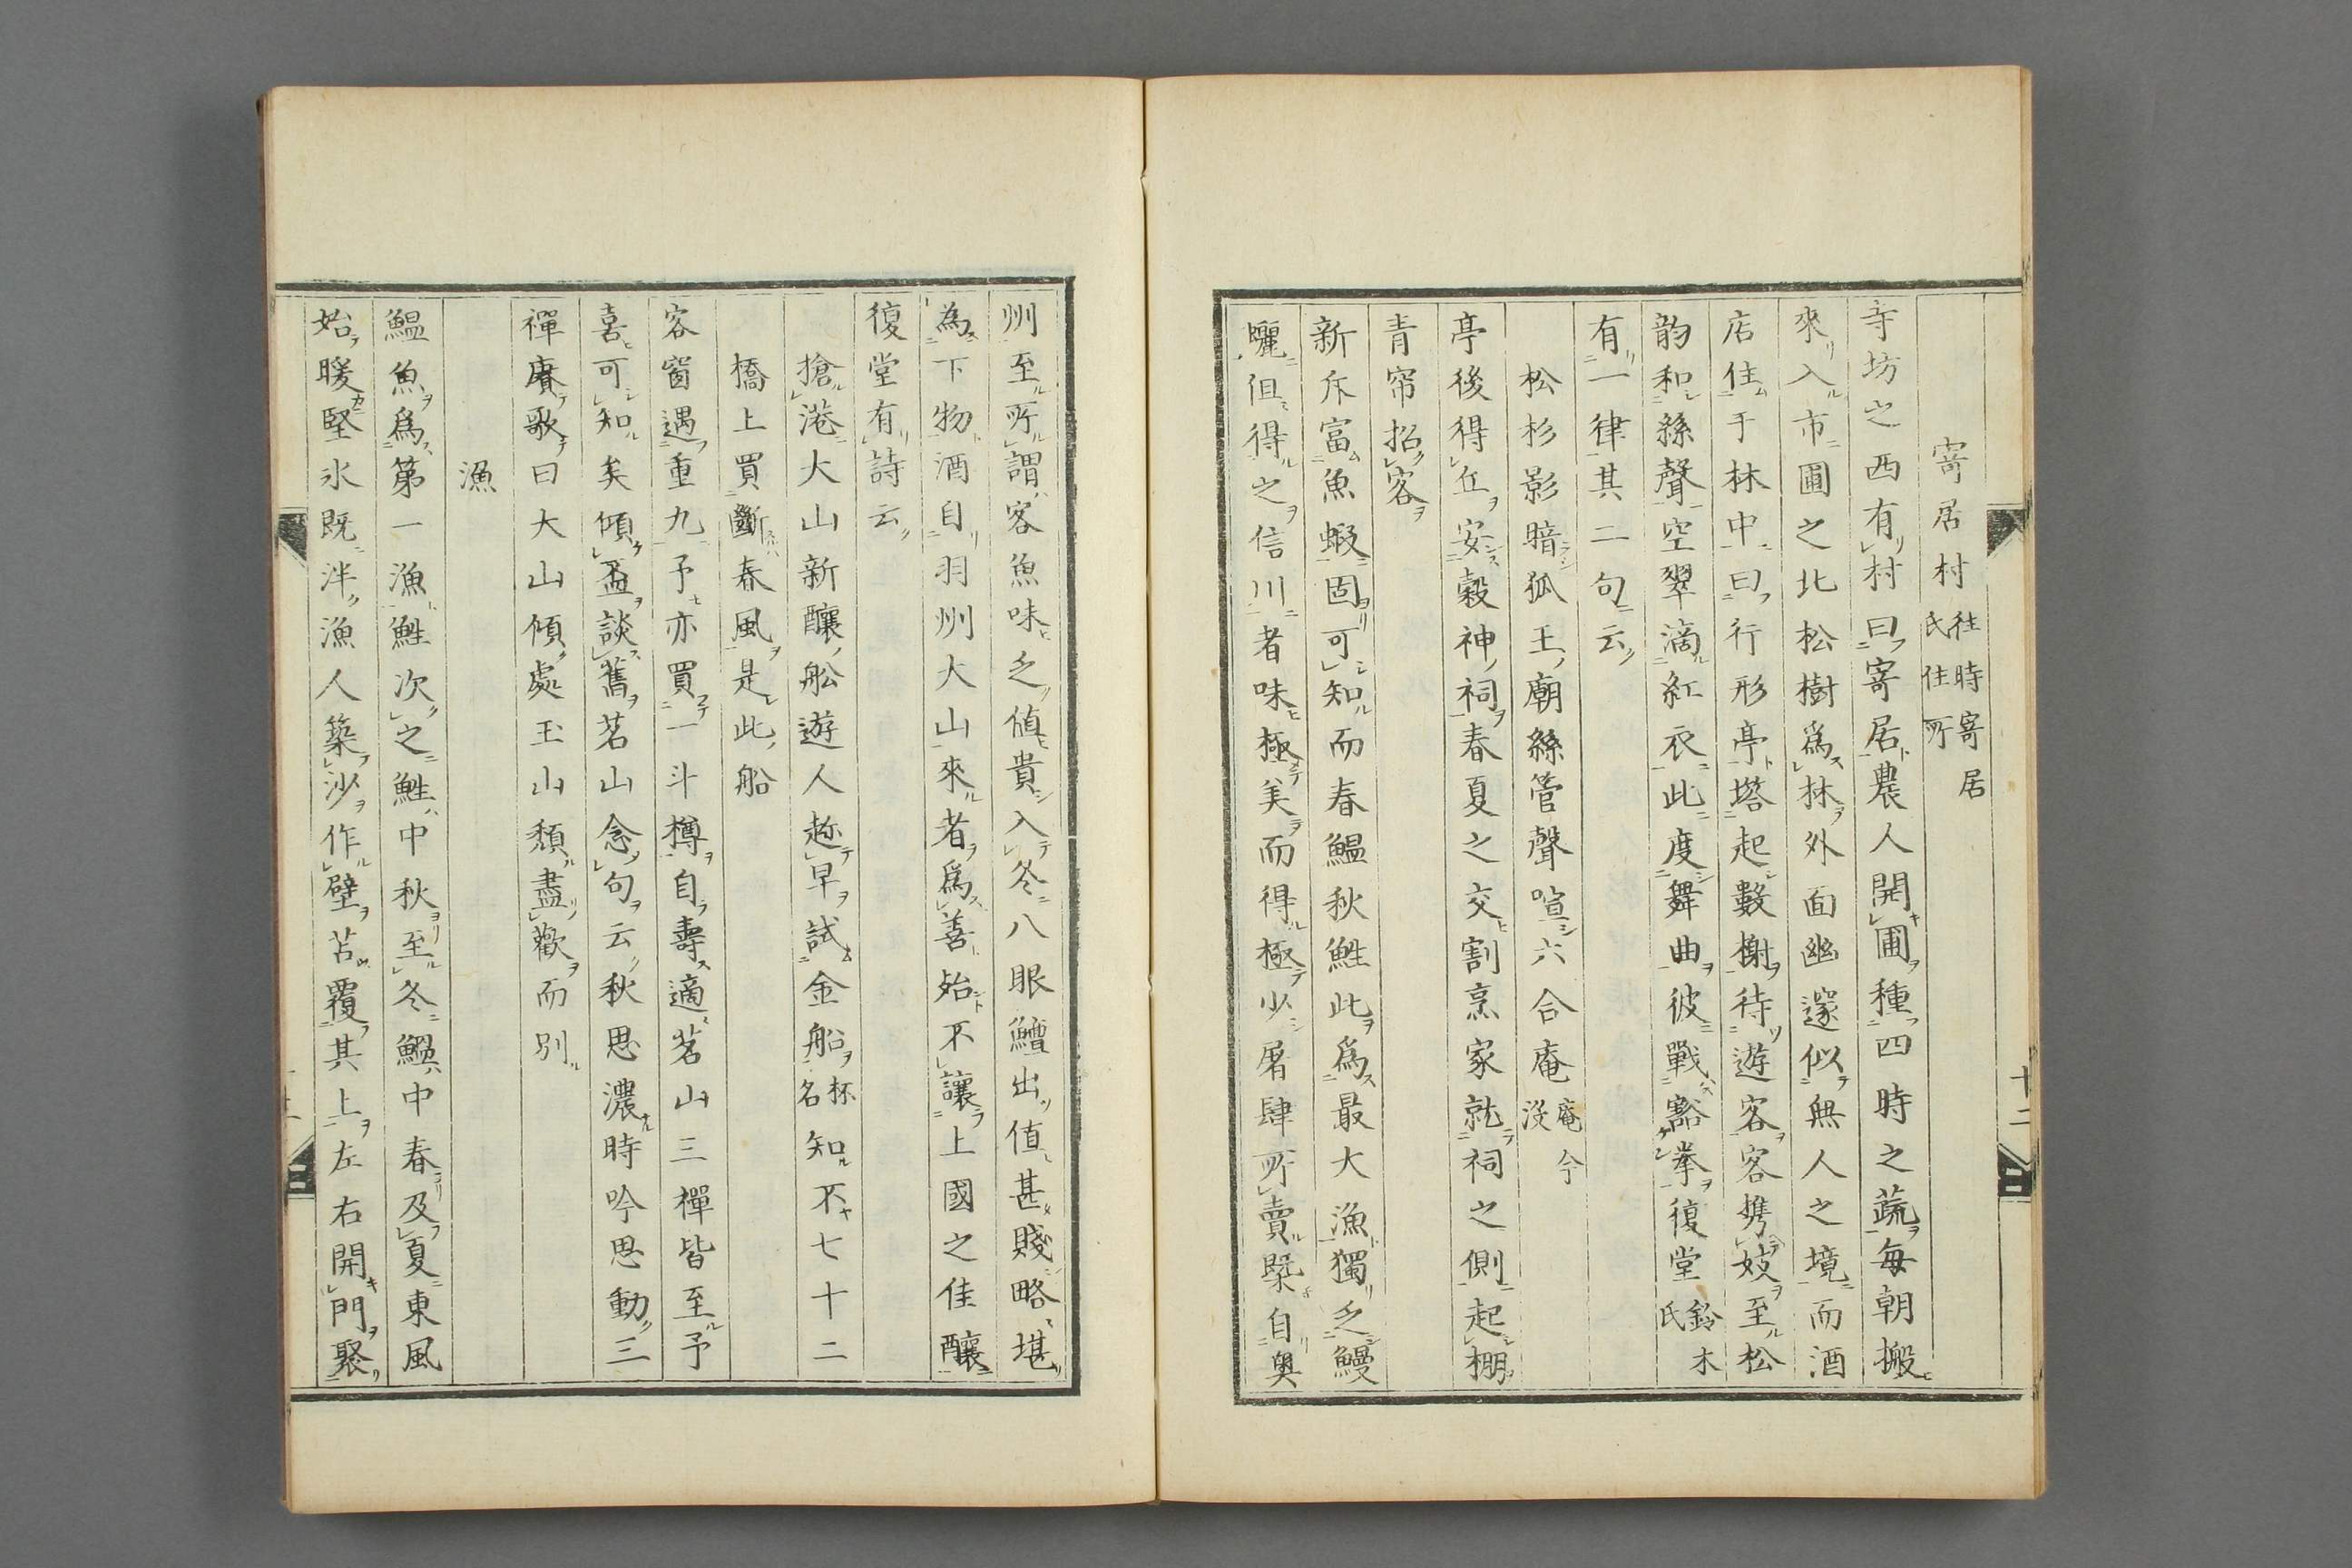 寄居村 往時寄居氏住所
寺坊之西有村曰寄居農人開圃種四時之蔬每朝搬
來入市圃之北松樹爲林外面幽邃似無人之境而酒
店住于林中曰行形亭塔起數榭待遊客客携妓至松
韵和絲聲空翠滴紅衣此度舞曲彼戰豁拳復堂 鈴木氏
有一律其二句云
松杉影暗狐王廟絲管聲喧六合庵 庵今沒
亭後得丘安穀神祠春夏之交割烹家就祠之側起棚
青帘招客
新斥富魚蝦固可知而春鰮秋鮏此爲最大漁獨乏鰻
鱺但得之信川者味極美而得極少屠肆所賣槩自奥
州至所謂客魚味乏值貴入冬八眼鱣出值甚賤略堪
為下物酒自羽州大山來者爲善殆不讓上國之佳釀
復堂有詩云
搶港大山新釀舩遊人趂早試金船 杯名 知不七十二
橋上買斷春風是此船
客窗遇重九予亦買一斗樽自壽適茗山三樿皆至予
喜可知矣傾盃談舊茗山念句云秋思濃時吟思動三
樿賡歌曰大山傾處玉山頽盡歡而別
漁
鰮魚爲第一漁鮏次之鮏中秋至冬鰮中春及夏東風
始暖堅氷既泮漁人築沙作壁苫覆其上左右開門聚
十二